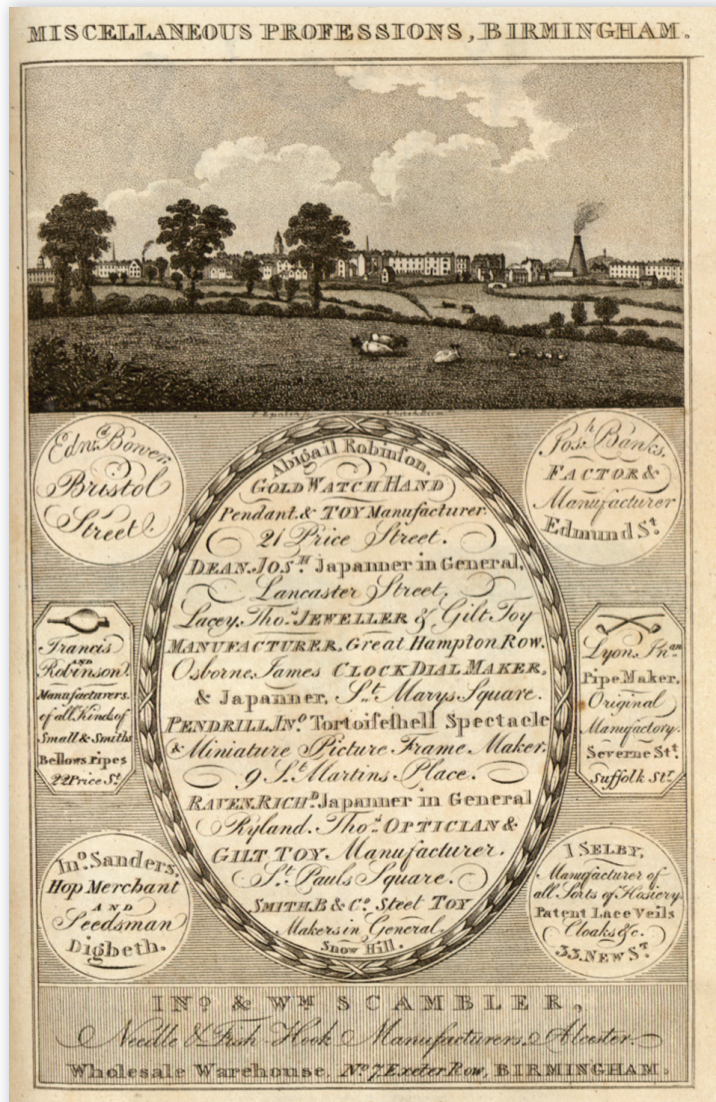 MISCELLANEOUS PROFESSIONS, BIRMINGHAM.
Edwd. Bower,
Bristol
Street.
Josh. Banks,
FACTOR &
Manufacturer
Edmund St.
Abigail Robinson.
GOLD WATCH HAND
Pendant & TOY Manufacturer.
21 Price Street.
DEAN, JOSH. Japanner in General,
Lancaster Street,
Lacey, Thos. JEWELLER & Gilt Toy
MANUFACTURER, Great Hampton Row.
Osborne, James CLOCK DIAL MAKER,
& Japanner, St. Marys Square.
PENDRILL, JNO. Tortoiſeſhell Spectacle
& Miniature Picture Frame Maker.
9 St. Martins Place.
RAVEN, RICHD. Japanner in General
Ryland, Thos. OPTICIAN &
GILT TOY Manufacturer.
St. Pauls Square.
SMITH, B & Co. Steet TOY
Makers in General
Snow Hill.
Francis
AND
Robinson.
Manufacturers.
of all Kinds of
Small & Smiths
Bellows Pipes
22 Price St.
Lyon, Jnan
Pipe Maker,
Original
Manufactory.
Severne Stt.
Suffolk Str.
Jno. Sanders,
Hop Merchant
AND
Seedsman
Digbeth.
I SELBY,
Manufacturer of
all Sorts of Hosiery
Patent Lace Veils
Cloaks &c.
33, NEW ST.
INO. & WM. SCAMBLER,
Needle & Fish-Hook Manufacturers, Alcester.
Wholesale Warehouse, No. 7 Exeter Row, BIRMINGHAM.